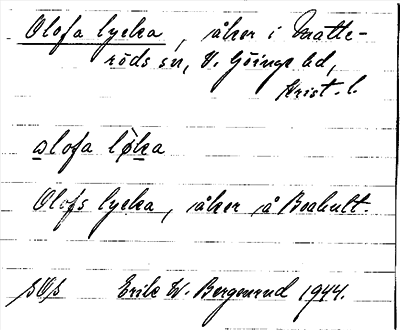 Olofa lycka, åker i Matte-
röds sn, V. Göinge hd,
Krist. l.
olofa løka
Olofs lycka, åker å Boahult.
Erik W. Bergenrud 1944.